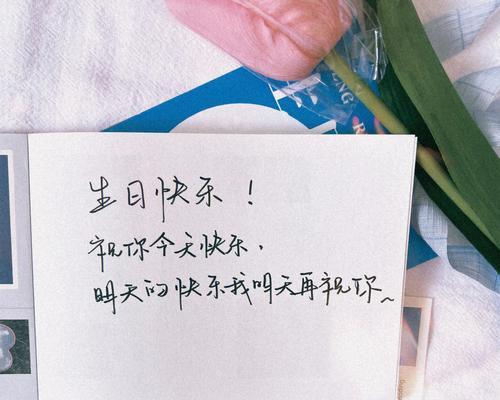 ENG
生日快乐！
祝你今天快乐.
明天的快乐我明天再祝你~